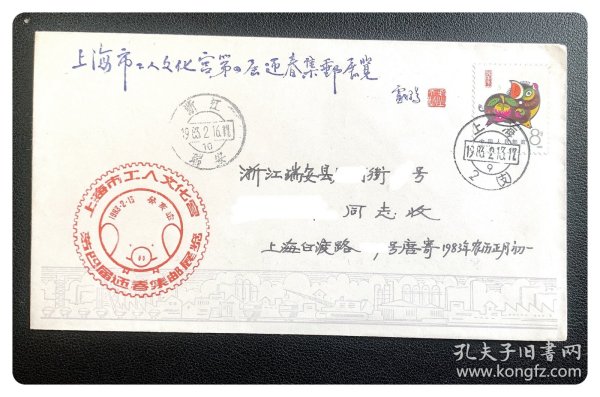 上海市工人文化宫第四届迎春集郵展覽
浙江
1983.2.16.18
瑞安
上海
1983.2.13.12
中国人民邮政
8分
浙江瑞安县 街 号
同志收
上海白渡路 , 号唐寄 1983年农历正月初一
上海市工人文化宫
1983·2·13
第四届迎春集邮展览
孔夫子旧书网
www.kongfz.com